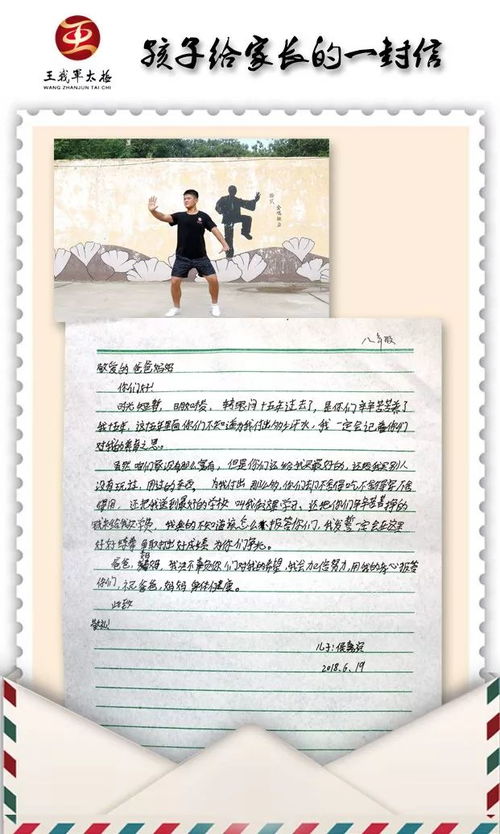 王战军太极
WANG ZHANJUN TAI CHI
孩子给家长的一封信
八年级
敬爱的爸爸妈妈
你们好!
时光如逝，日月如梭，转眼间十五年过去了，是你们辛辛苦苦养了
我十五年，这十五年里面你们不知道为我付出的多少汗水，我一定会记着你们
对我的养育之恩。
虽然咱们家没有怎么富有，但是你们还给我买最好的，还把我别人
没有玩过，用过的东西，为我付出那么多，你们却不舍得吃不舍得穿不舍
得用，还把我送到最好的学校 叫我在这里学习，还把你们辛辛苦苦挣的
钱来给我交学费，我真的不知道该怎么报答你们，我发誓一定会在这里
好好 争取打出好成绩 为你们争光。
爸爸，妈妈，我决不辜负你们对我的希望，我会加倍努力，用我的孝心报答
你们，祝爸爸，妈妈 身体健康。
此致
敬礼
儿子:侯
2018.6.19